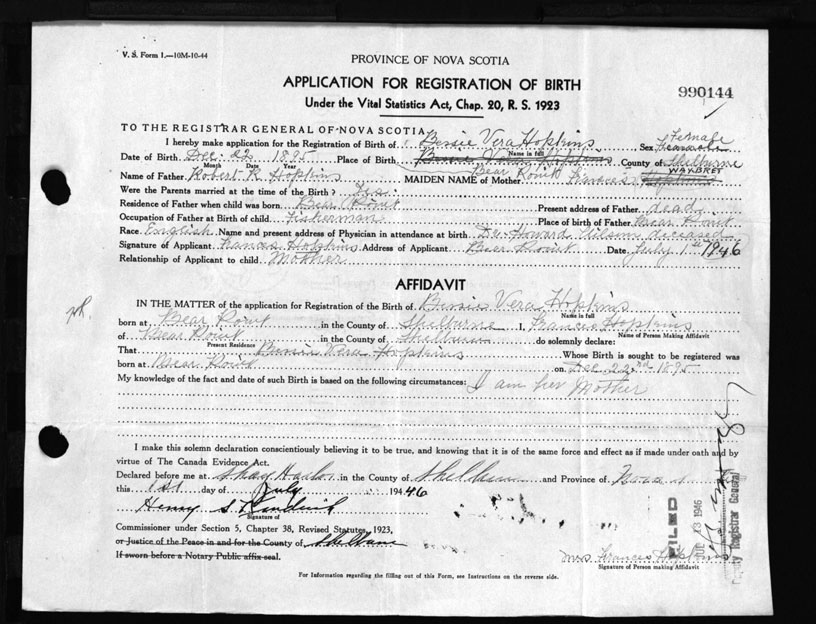 V. S. Form 1.—10M-10-44
PROVINCE OF NOVA SCOTIA
APPLICATION FOR REGISTRATION OF BIRTH
Under the Vital Statistics Act, Chap. 20, R. S. 1923
990144
TO THE REGISTRAR GENERAL OF NOVA SCOTIA
I hereby make application for the Registration of Birth of Bessie Vera Hopkins Sex Female
Name in full
Date of Birth Dec. 22, 1895 Place of Birth Bessie Vera Hopkins County of Shelburne
Month Date Year
Bear Point
Name of Father Robert R. Hopkins MAIDEN NAME of Mother Frances Hopkins
Were the Parents married at the time of the Birth? Yes
Residence of Father when child was born Bear Point Present address of Father dead
Occupation of Father at Birth of child Fisherman Place of birth of Father Bear Point
Race English Name and present address of Physician in attendance at birth Dr. Howard deceased
Signature of Applicant Frances Hopkins Address of Applicant Bear Point Date July 1st 1946
Relationship of Applicant to child Mother
AFFIDAVIT
IN THE MATTER of the application for Registration of the Birth of Bessie Vera Hopkins
Name in full
born at Bear Point in the County of Shelburne I, Frances Hopkins
Name of Person making Affidavit
of Bear Point in the County of Shelburne do solemnly declare:
Present Residence
That Bessie Vera Hopkins Whose Birth is sought to be registered was
born at Bear Point on Dec 22nd 1895
My knowledge of the fact and date of such Birth is based on the following circumstances: I am her Mother
I make this solemn declaration conscientiously believing it to be true, and knowing that it is of the same force and effect as if made under oath and by
virtue of The Canada Evidence Act.
Declared before me at Shag Harbor in the County of Shelburne and Province of Nova
this 1st day of July 19446
Henry S. Kendrick
Signature of
Commissioner under Section 5, Chapter 38, Revised Statutes, 1923,
or Justice of the Peace in and for the County of Shelburne
If sworn before a Notary Public affix seal.
Mrs Frances Hopkins
Signature of Person making Affidavit
FILED
13 1946
Deputy Registrar General
For Information regarding the filling out of this Form, see Instructions on the reverse side.